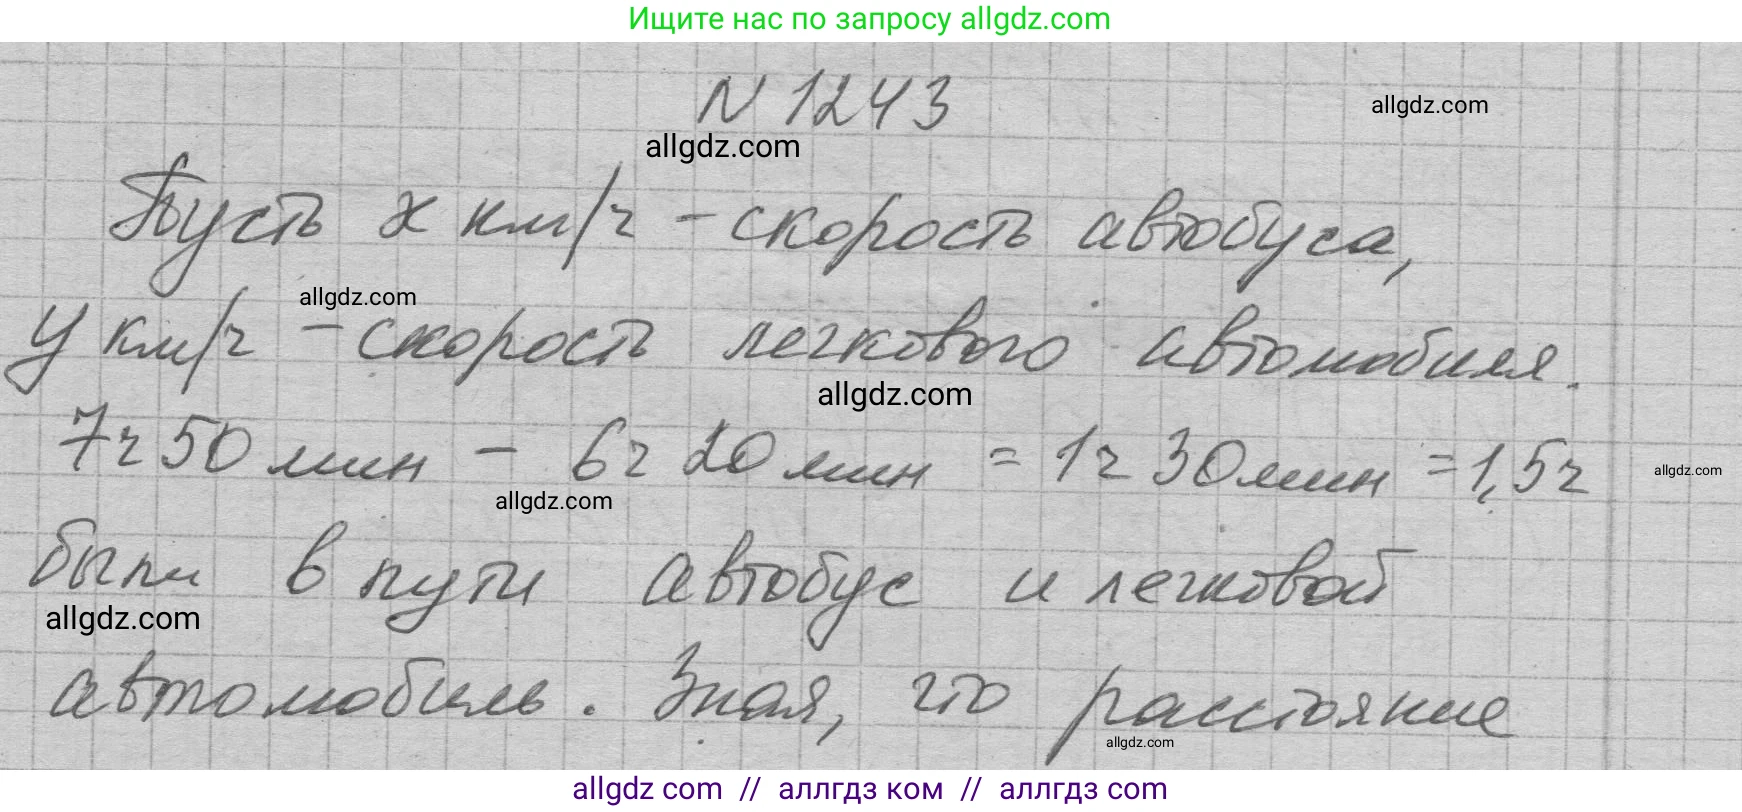 Ищите нас по запросу allgdz.com
N 1243
allgdz.com
allgdz.com
Пусть x км/ч - скорость автобуса,
allgdz.com
y км/ч - скорость легкового автомобиля.
allgdz.com
7ч 50 мин - 6ч 20 мин = 1ч 30 мин = 1,5ч
allgdz.com
allgdz.com
были в пути автобус и легковой
allgdz.com
автомобиль. Зная, что расстояние
allgdz.com
allgdz com // аллгдз ком // аллгдз com